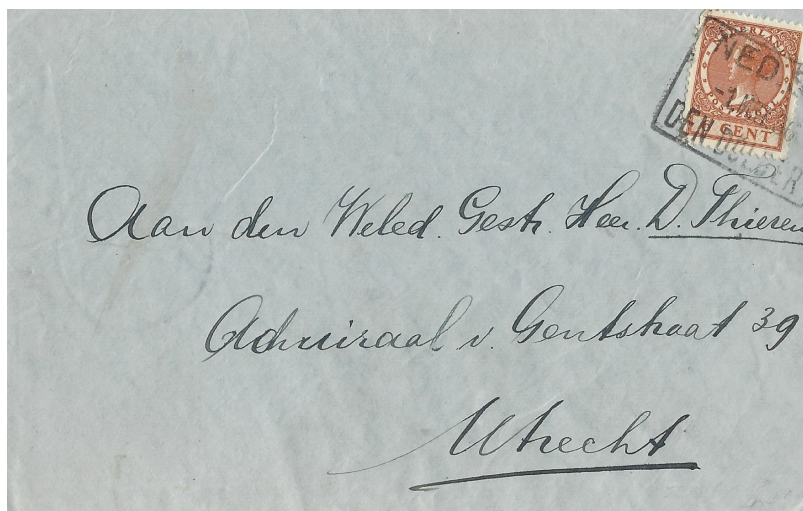 NEDERLAND
NED
-1.
POST
CENT
DEN DOLDER
Aan den Weled. Gestr. Heer. D. Thieren
Admiraal v. Gentstraat 39
Utrecht